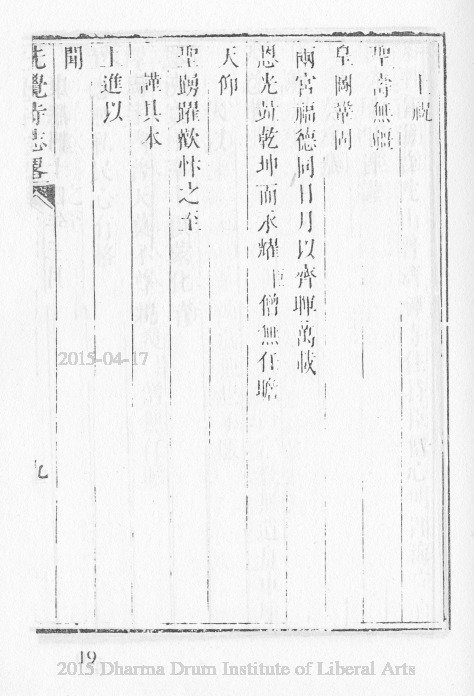 上祝
聖壽無疆
皇圖鞏固
兩宮福德同日月以齊暉萬載
恩光並乾坤而永耀 僧無任瞻
天仰
聖踴躍歡忭之至
謹具本
上進以
聞
覺寺志畧
九
2015-04-17
19
2015 Dharma Drum Institute of Liberal Arts